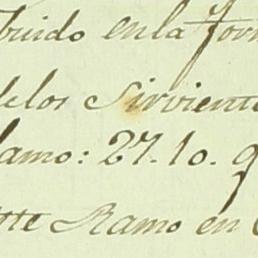 buido en la for
de los Sirviente
lamo: 27. 10. q
este Ramo en